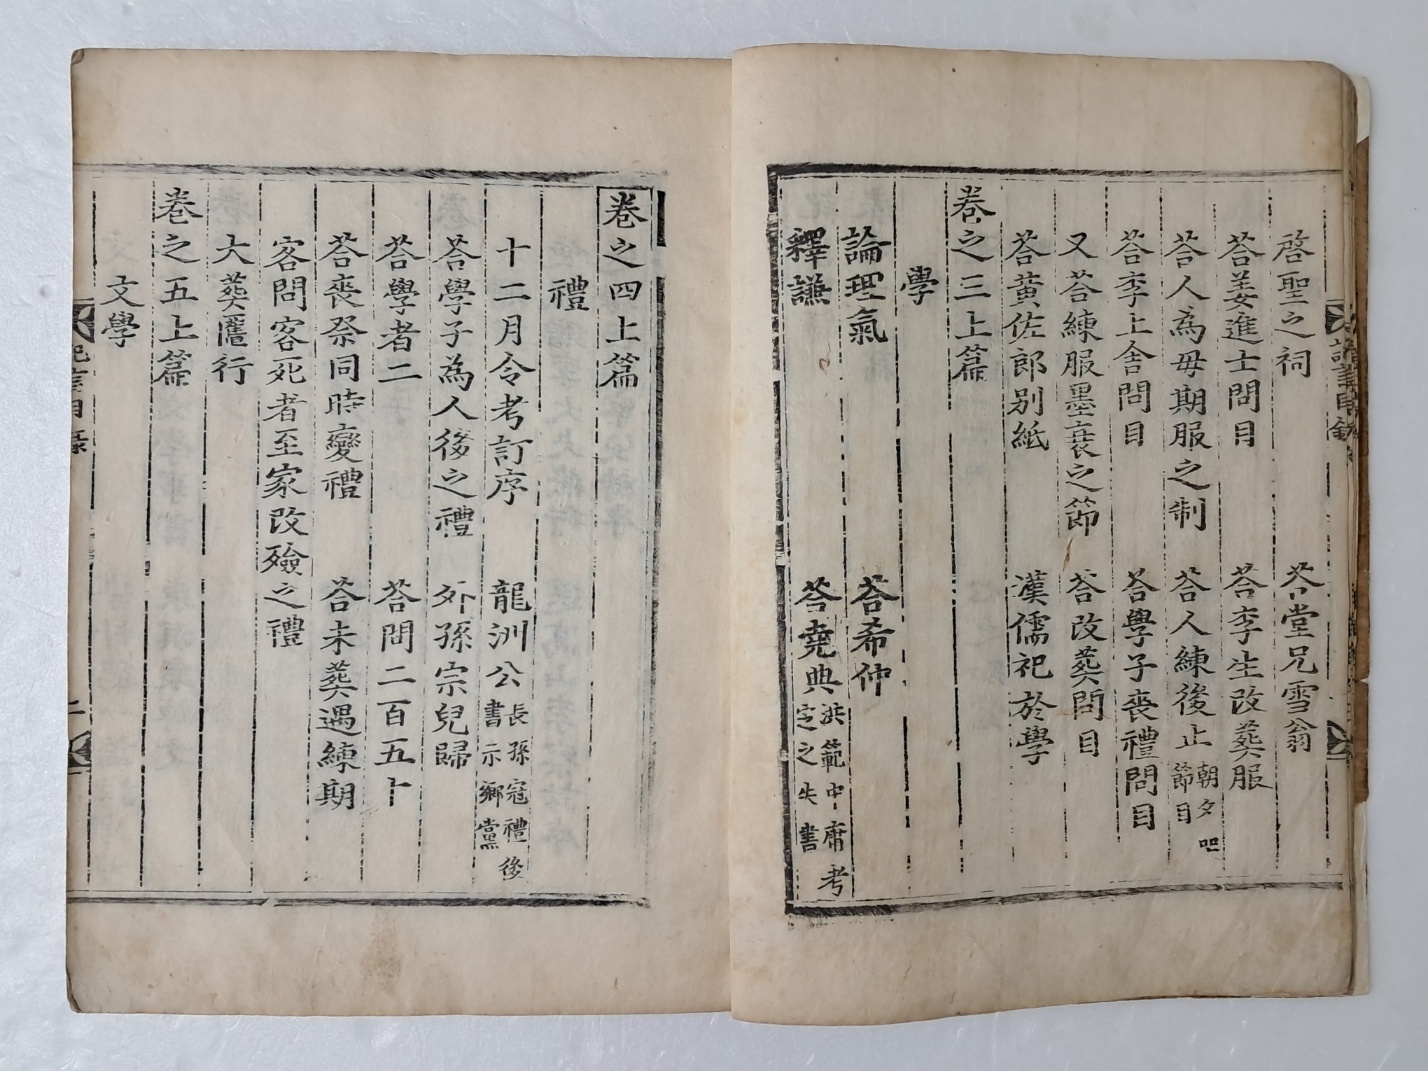 啓聖之祠 答堂兄雪翁
答姜進士問目 答李生改葬服
答人為毋期服之制 答人練後止朝夕哭節目
答李上舍問目 答學子喪禮問目
又答練服墨衰之節 答改葬問目
答黄佐郎别紙 漢儒祀於學
卷之三上篇
學
論理氣 答希仲
釋謙 答堯典洪範中庸考定之失書
卷之四上篇
禮
十二月令考訂序 龍洲公長孫冠禮後書示鄉黨
答學子為人後之禮 外孫宗兒歸
答學者二 答問二百五十
答喪祭同時變禮 答未葬遇練期
客問客死者至家改殮之禮
大葬匽行
卷之五上篇
文學
記言目錄
二